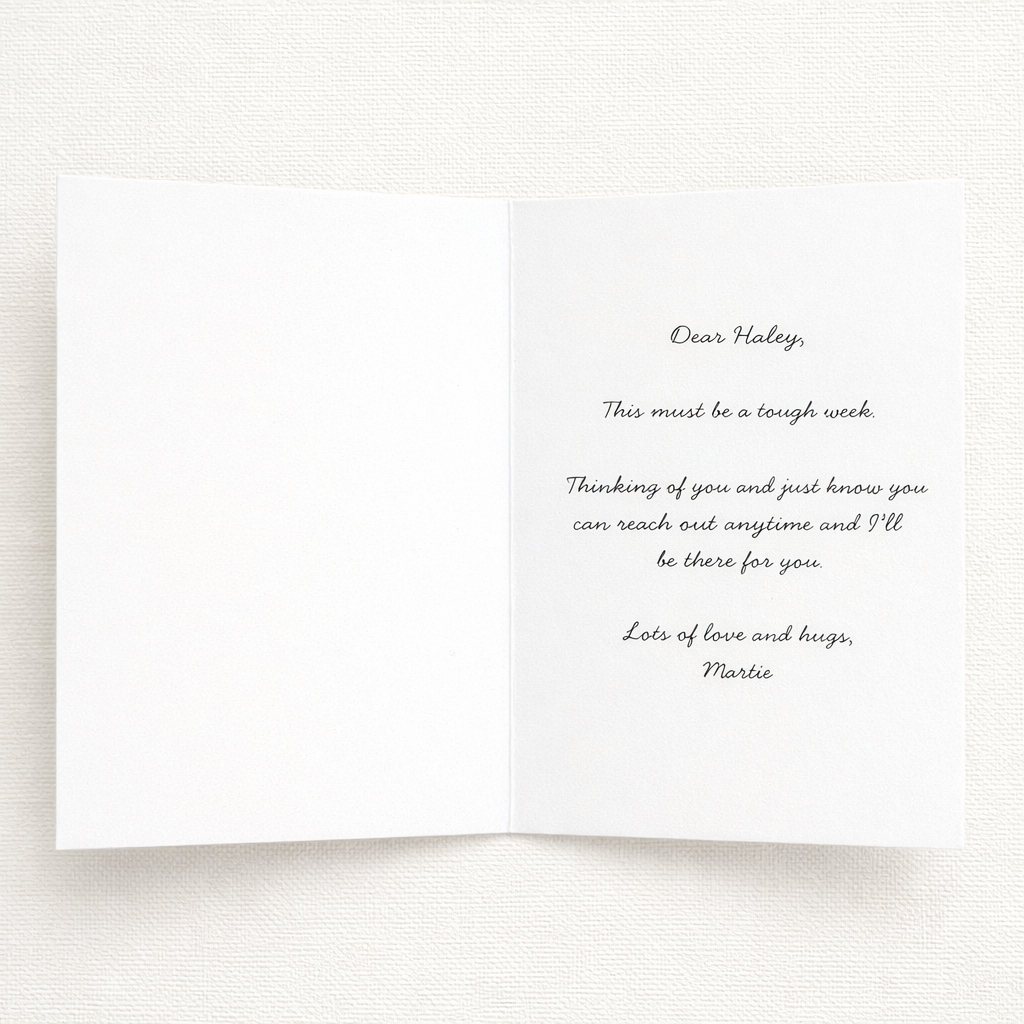 Dear Haley,
This must be a tough week.
Thinking of you and just know you
can reach out anytime and I'll
be there for you.
Lots of love and hugs,
Martie